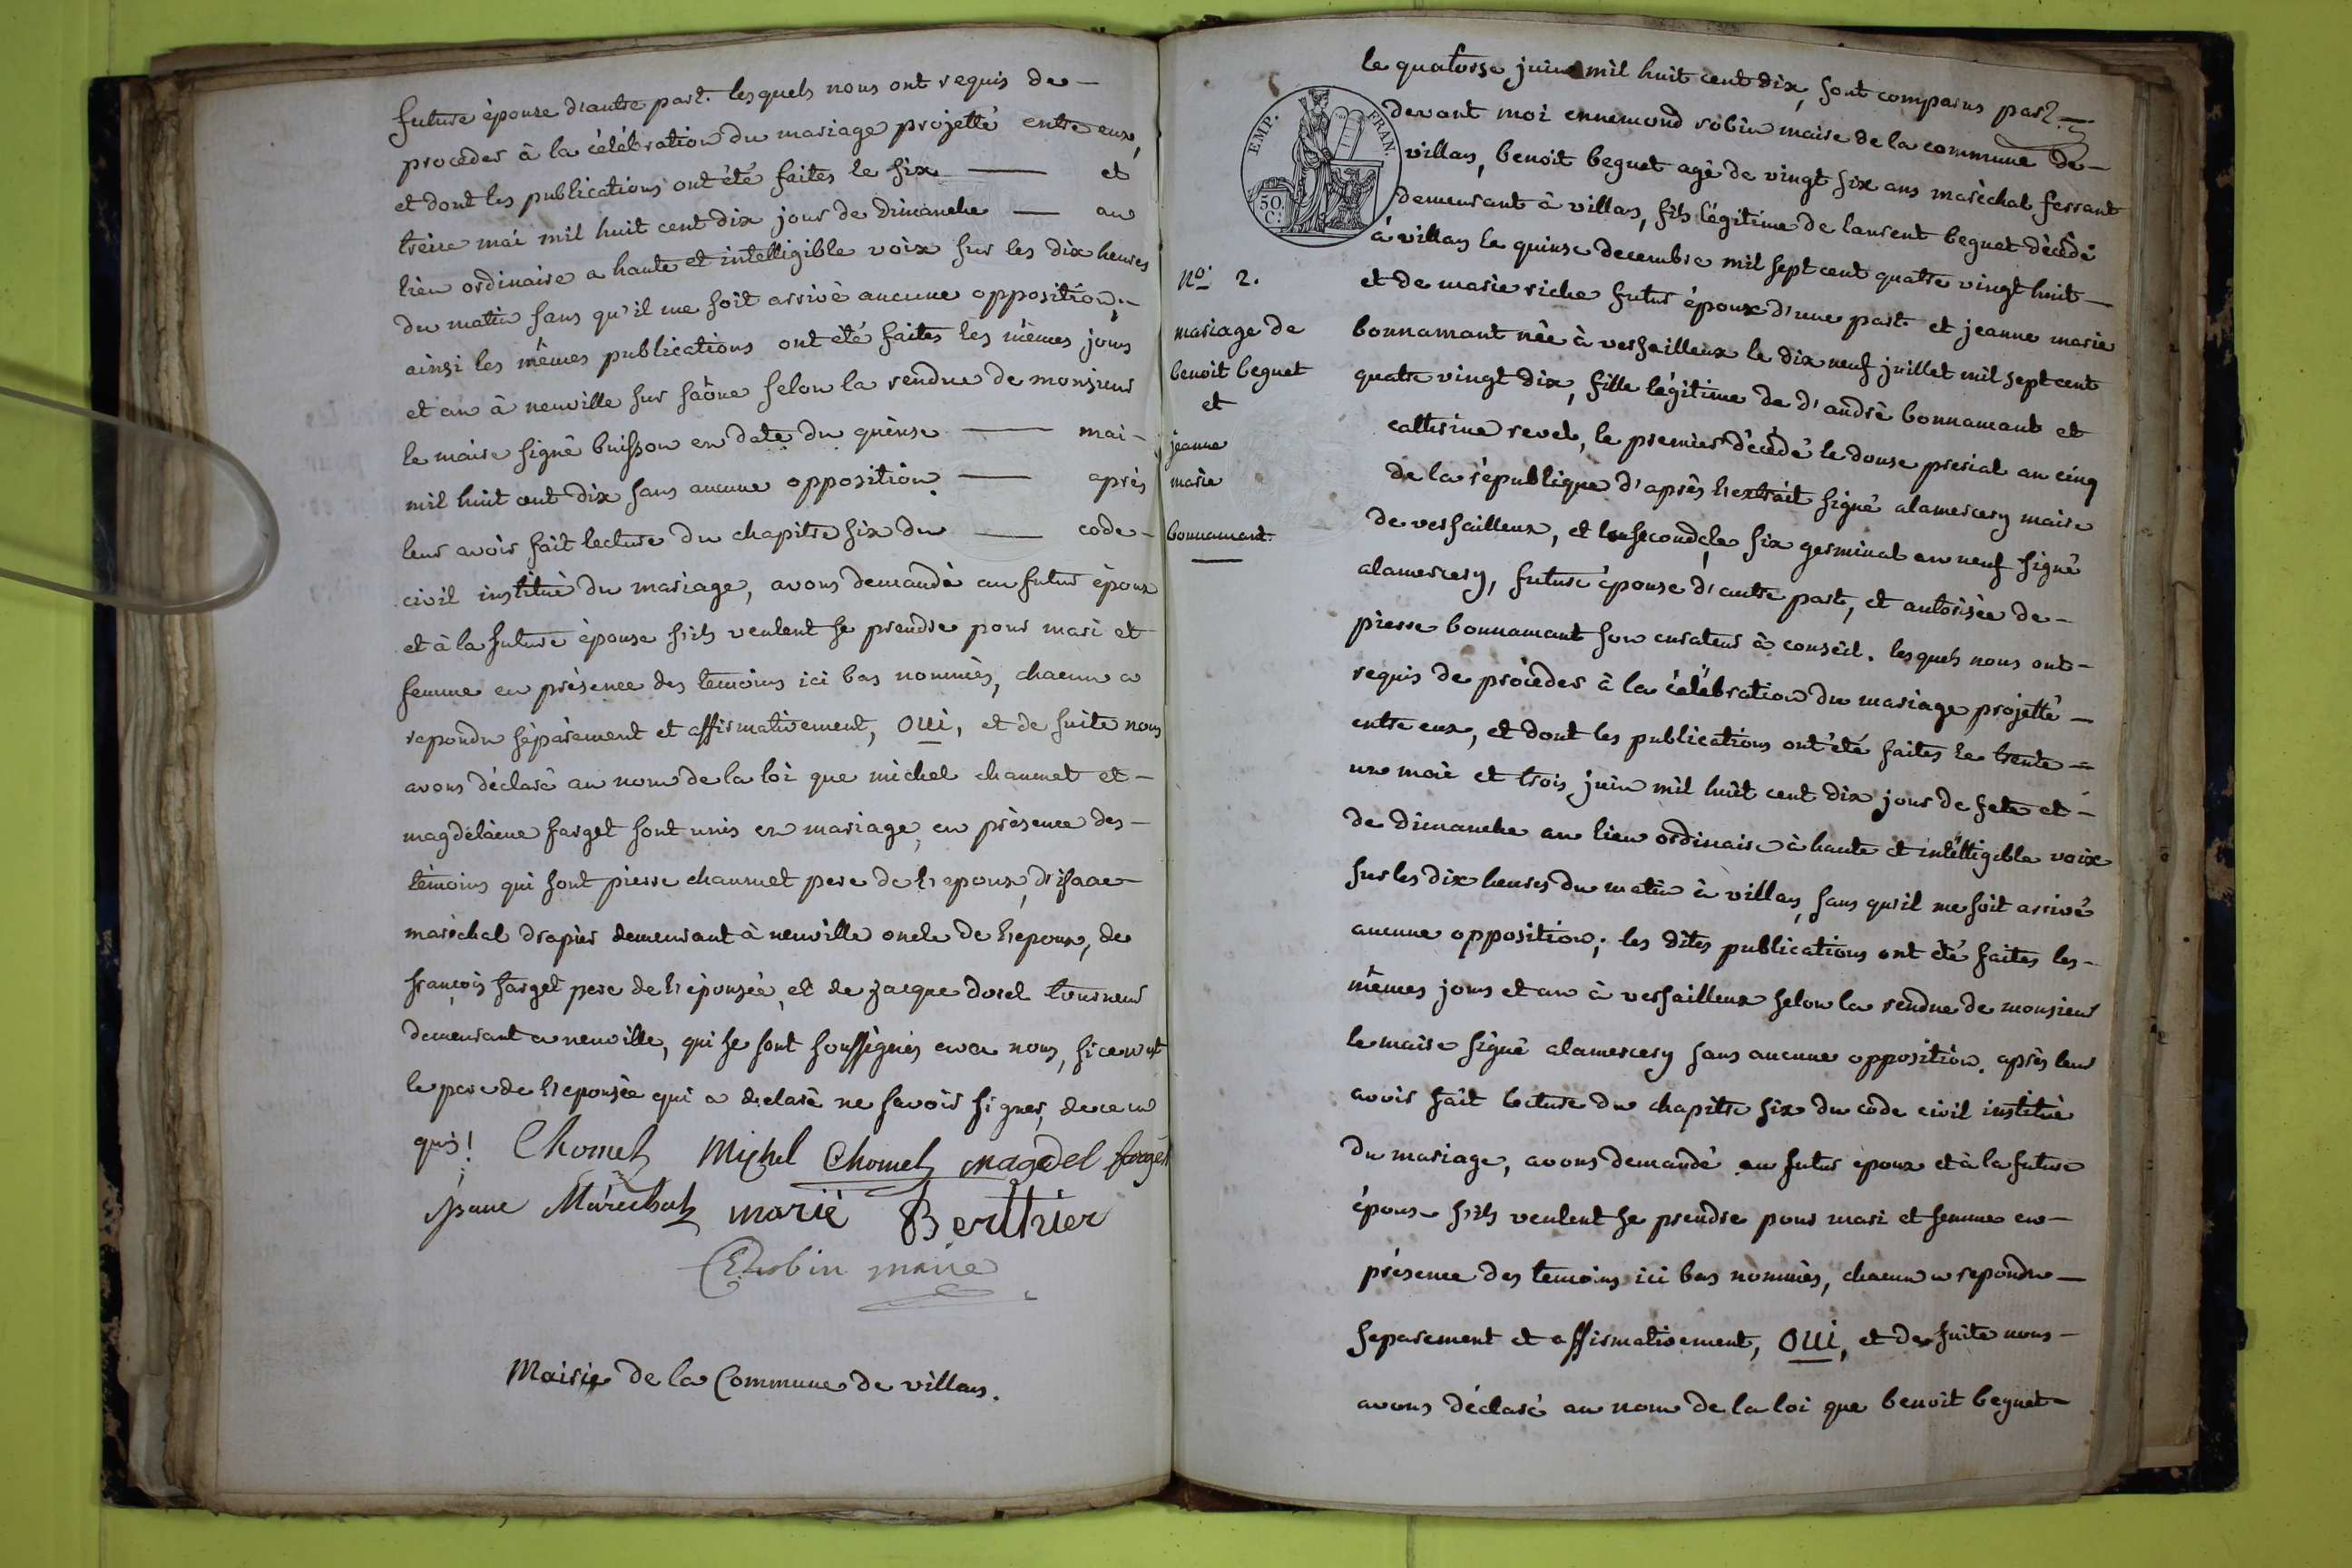 future épouse d'autre part. lesquels nous ont requis de —
proceder à la célébration du mariage projetté entre eux,
et dont les publications ont été faites le six — et
treize mai mil huit cent dix jour de Dimanche — au
lieu ordinaire a haute et intelligible voix sur les dix heures
du matin sans qu'il me soit arrivé aucune opposition;
ainsi les mêmes publications ont été faites les mêmes jours
et an à neuville sur saône selon la rendue de monsieur
le maire signé buisson en date du quinse — mai -
mil huit cent dix sans aucune opposition. — après
leur avoir fait lecture du chapitre six du — code -
civil institué du mariage, avons demandé au futur époux
et à la future épouse s'ils veulent se prendre pour mari et
femme en présence des temoins ici bas nommés, chacun a
repondu séparément et affirmativement, OUI, et de suite nous
avons déclaré au nom de la loi que michel chaumet et -
magdelaine farget sont unis en mariage, en présence des -
témoins qui sont pierre chaumet pere de l'epoux, d'isaac
maréchal drapier demeurant à neuville oncle de l'epoux, de
françois farget pere de l'épousée, et de jacque dorel tourneur
demeurant a neuville, qui se sont soussignés avec nous, si ce n'est
le pere de l'epousée qui a declaré ne savoir signer, de ce en
quis! Chomet Michel Chomet magdel farget
Maréchal marié Berthier
Robin maire
Mairie de la Commune de villars.
EMP. FRAN.
50 C.
no. 2.
mariage de
benoit beguet
et
jeanne
marie
bonnamant.
le quatorse juin mil huit cent dix, sont comparus part.
devant moi ennemond robin maire de la commune de -
villars, benoit beguet agé de vingt six ans maréchal ferrant
demeurant à villars, fils légitime de laurent beguet décédé
à villars le quinse decembre mil sept cent quatre vingt huit —
et de marie riche futur époux d'une part et jeanne marie
bonnamant née à versailleux le dix neuf juillet mil sept cent
quatre vingt dix, fille légitime de d'andré bonnamant et
catherine revel, le premier décédé le douse prerial an cinq
de la république d'après l'extrait signé alamercery maire
de versailleux, et la seconde, le six germinal an neuf signé
alamercery, future épouse d'autre part, et autorisée de -
pierre bonnamant son curateur à conseil. lesquels nous ont -
requis de procéder à la célébration du mariage projetté —
entre eux, et dont les publications ont été faites le trente =
un mai et trois juin mil huit cent dix jour de fete et -
de dimanche au lieu ordinaire à haute et intélligible voix
sur les dix heures du matin à villars, sans qu'il me soit arrivé
aucune opposition; les dites publications ont été faites les -
mêmes jours et an à versailleux selon la rendue de monsieur
le maire signé alamercery sans aucune opposition. après leur
avoir fait lecture du chapitre six du code civil institué
du mariage, avons demandé au futur epoux et à la future
épouse s'ils veulent se prendre pour mari et femme en —
présence des temoins ici bas nommés, chacun a repondu —
separement et affirmativement, OUI, et de suite nous -
avons déclaré au nom de la loi que benoit beguet -